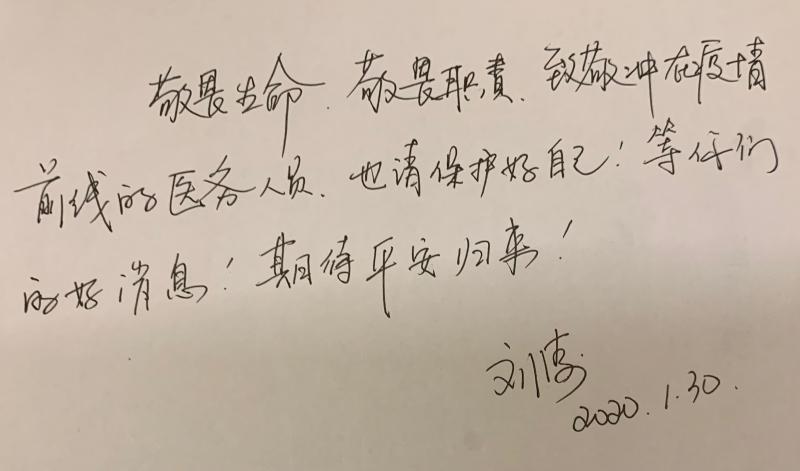 敬畏生命.敬畏职责.致敬冲在疫情
前线的医务人员.也请保护好自己!等你们
的好消息!期待平安归来!
刘涛
2020.1.30.